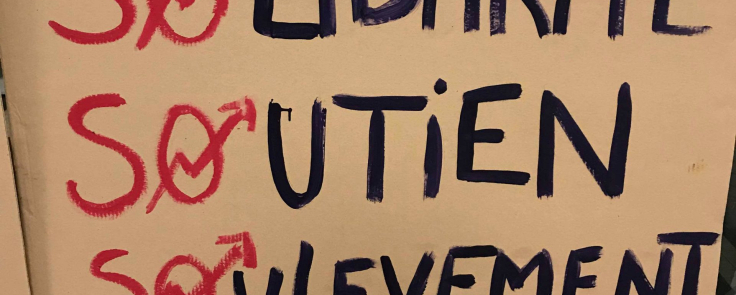 SOLIDARITÉ
SOUTiEN
SOULEVEMENT